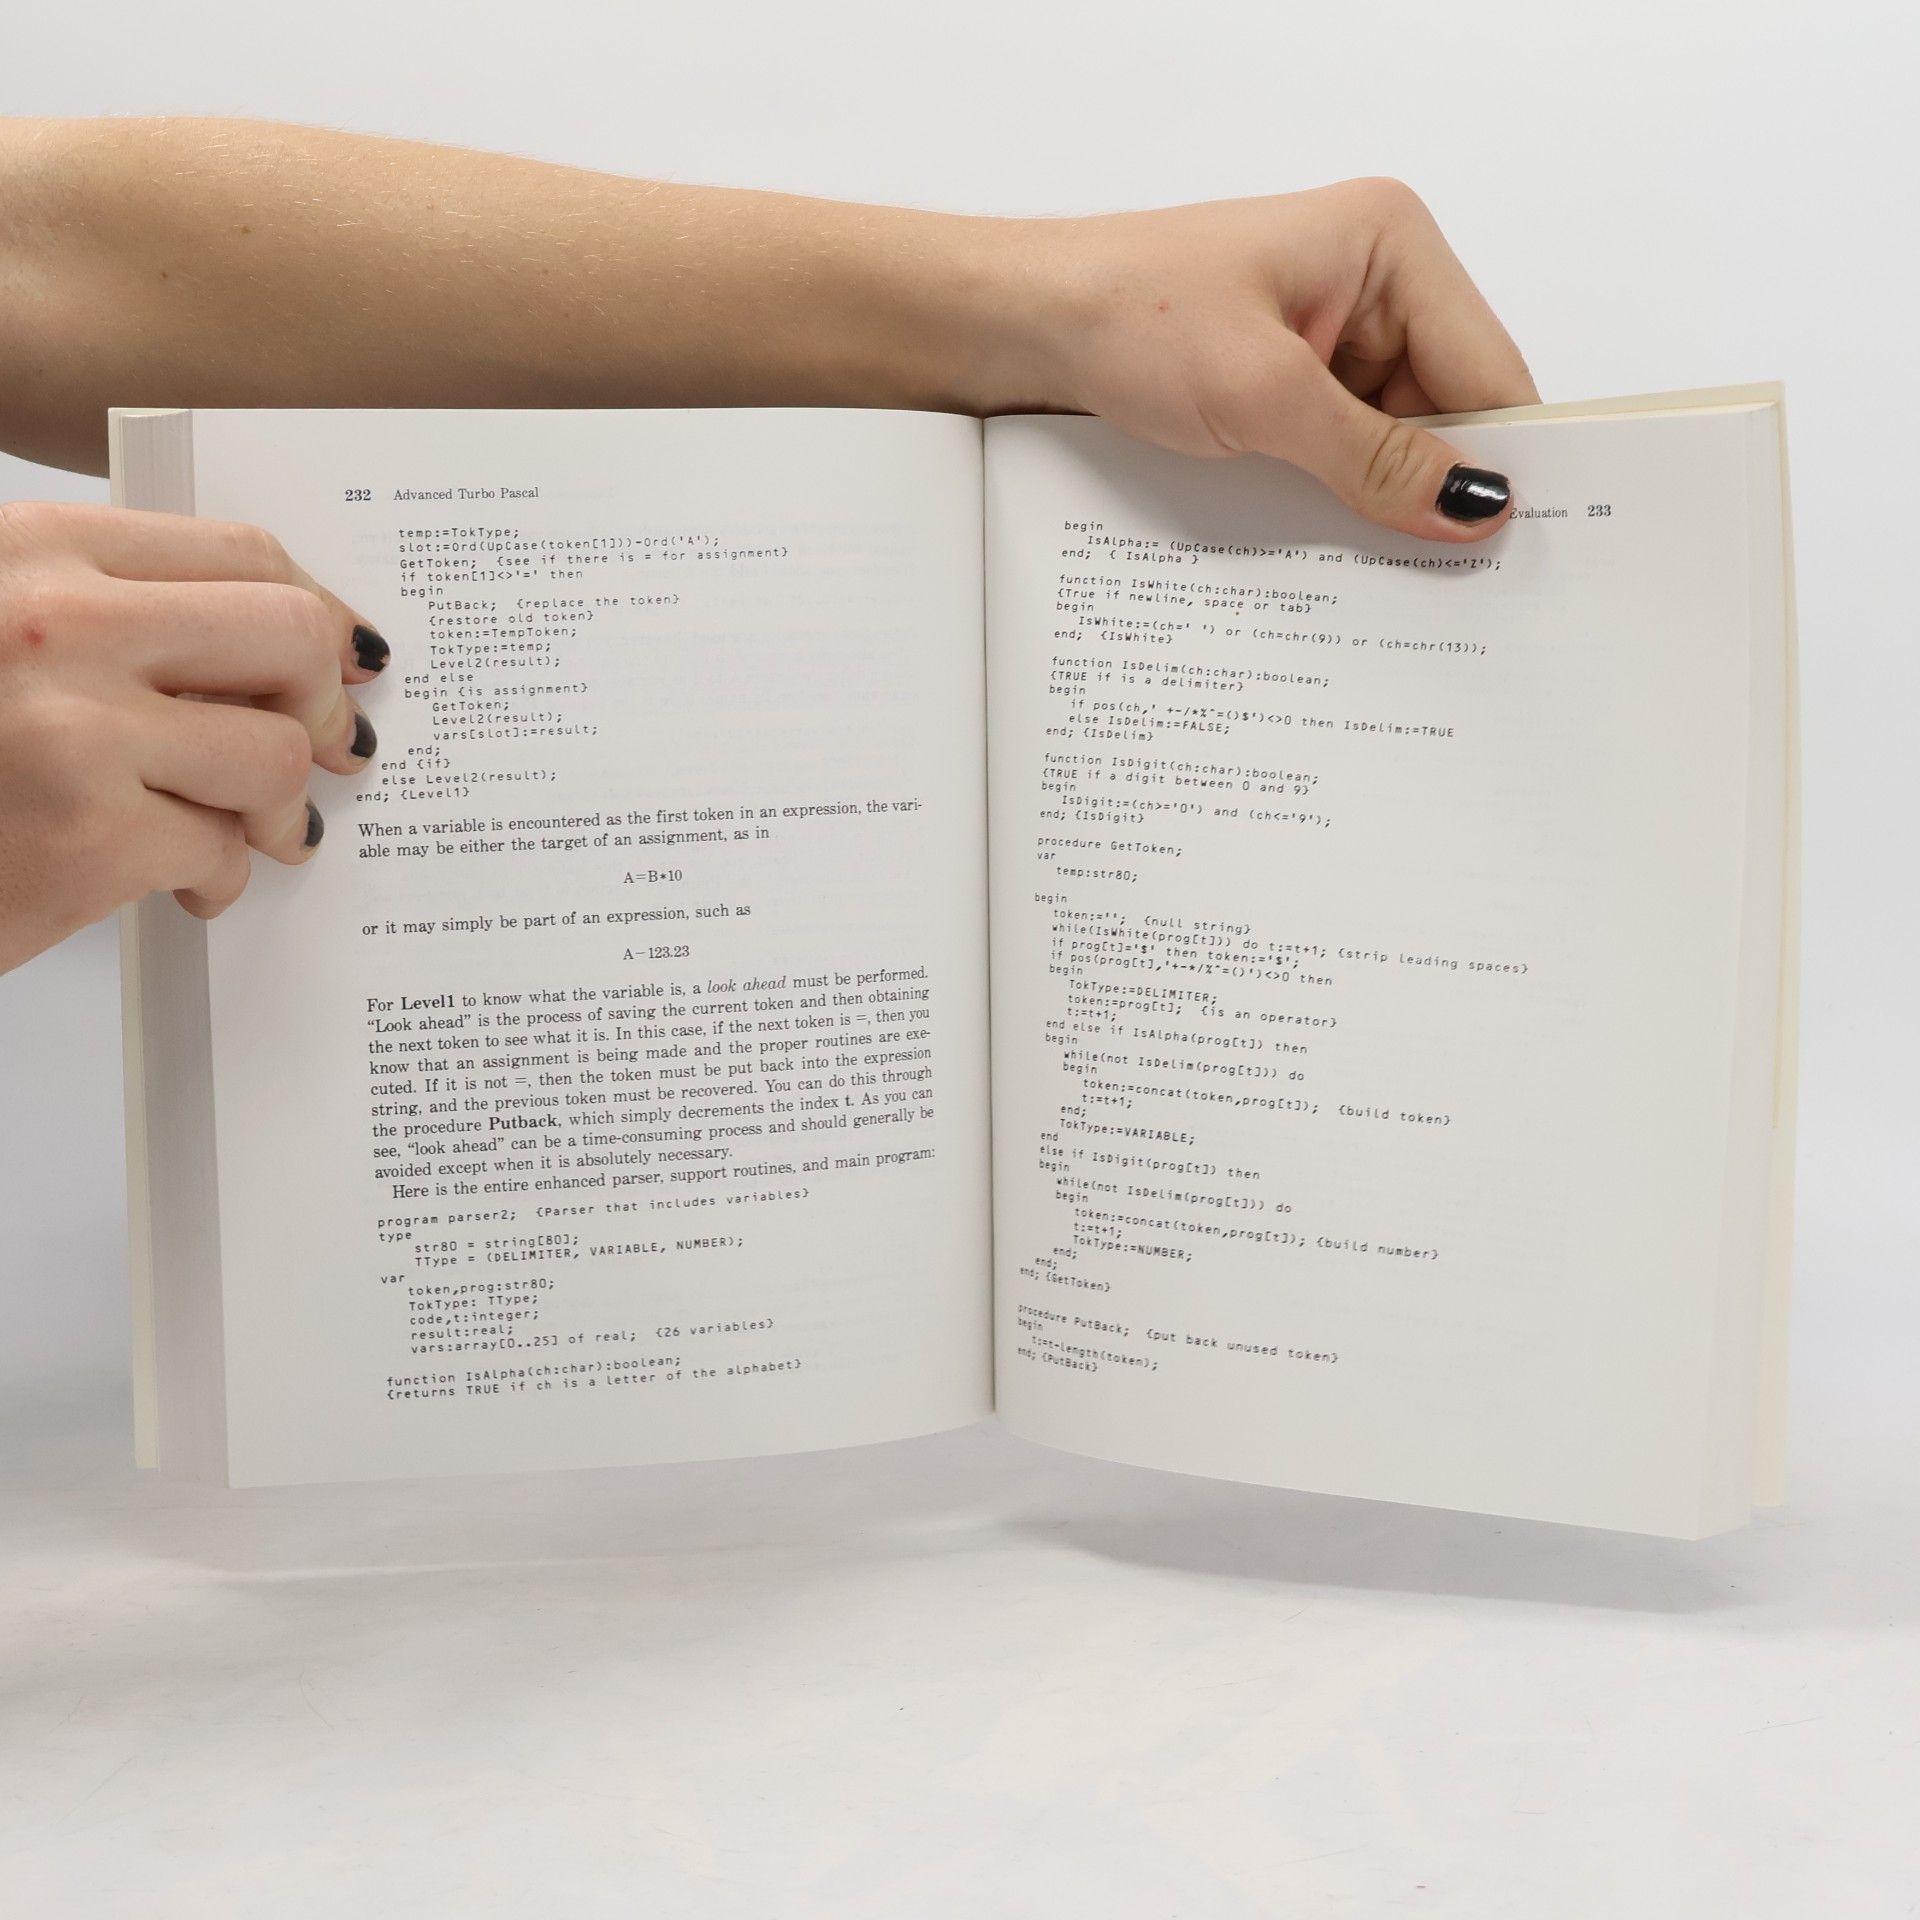 232 Advanced Turbo Pascal
temp:=TokType;
slot:=Ord(UpCase(token[1]))-Ord('A');
GetToken; {see if there is = for assignment}
if token[1]<>'=' then
begin
PutBack; {replace the token}
{restore old token}
token:=TempToken;
TokType:=temp;
Level2(result);
end else
begin {is assignment}
GetToken;
Level2(result);
vars[slot]:=result;
end;
end {if}
else Level2(result);
end; {Level1}
When a variable is encountered as the first token in an expression, the vari-
able may be either the target of an assignment, as in
A=B*10
or it may simply be part of an expression, such as
A−123.23
For Level1 to know what the variable is, a look ahead must be performed.
“Look ahead” is the process of saving the current token and then obtaining
the next token to see what it is. In this case, if the next token is =, then you
know that an assignment is being made and the proper routines are exe-
cuted. If it is not =, then the token must be put back into the expression
string, and the previous token must be recovered. You can do this through
the procedure Putback, which simply decrements the index t. As you can
see, “look ahead” can be a time-consuming process and should generally be
avoided except when it is absolutely necessary.
Here is the entire enhanced parser, support routines, and main program:
program parser2; {Parser that includes variables}
type
str80 = string[80];
TType = (DELIMITER, VARIABLE, NUMBER);
var
token,prog:str80;
TokType: TType;
code,t:integer;
result:real;
vars:array[0..25] of real; {26 variables}
function IsAlpha(ch:char):boolean;
{returns TRUE if ch is a letter of the alphabet}
Evaluation 233
begin
IsAlpha:= (UpCase(ch)>='A') and (UpCase(ch)<='Z');
end; { IsAlpha }
function IsWhite(ch:char):boolean;
{True if newline, space or tab}
begin
IsWhite:=(ch=' ') or (ch=chr(9)) or (ch=chr(13));
end; {IsWhite}
function IsDelim(ch:char):boolean;
{TRUE if is a delimiter}
begin
if pos(ch,' +-/*%^=()$')<>0 then IsDelim:=TRUE
else IsDelim:=FALSE;
end; {IsDelim}
function IsDigit(ch:char):boolean;
{TRUE if a digit between 0 and 9}
begin
IsDigit:=(ch>='0') and (ch<='9');
end; {IsDigit}
procedure GetToken;
var
temp:str80;
begin
token:=''; {null string}
while(IsWhite(prog[t])) do t:=t+1; {strip leading spaces}
if prog[t]='$' then token:='$';
if pos(prog[t],'+-*/%^=()')<>0 then
begin
TokType:=DELIMITER;
token:=prog[t]; {is an operator}
t:=t+1;
end else if IsAlpha(prog[t]) then
begin
while(not IsDelim(prog[t])) do
begin
token:=concat(token,prog[t]); {build token}
t:=t+1;
end;
TokType:=VARIABLE;
end
else if IsDigit(prog[t]) then
begin
while(not IsDelim(prog[t])) do
begin
token:=concat(token,prog[t]); {build number}
t:=t+1;
TokType:=NUMBER;
end;
end;
end; {GetToken}
procedure PutBack; {put back unused token}
begin
t:=t-length(token);
end; {PutBack}